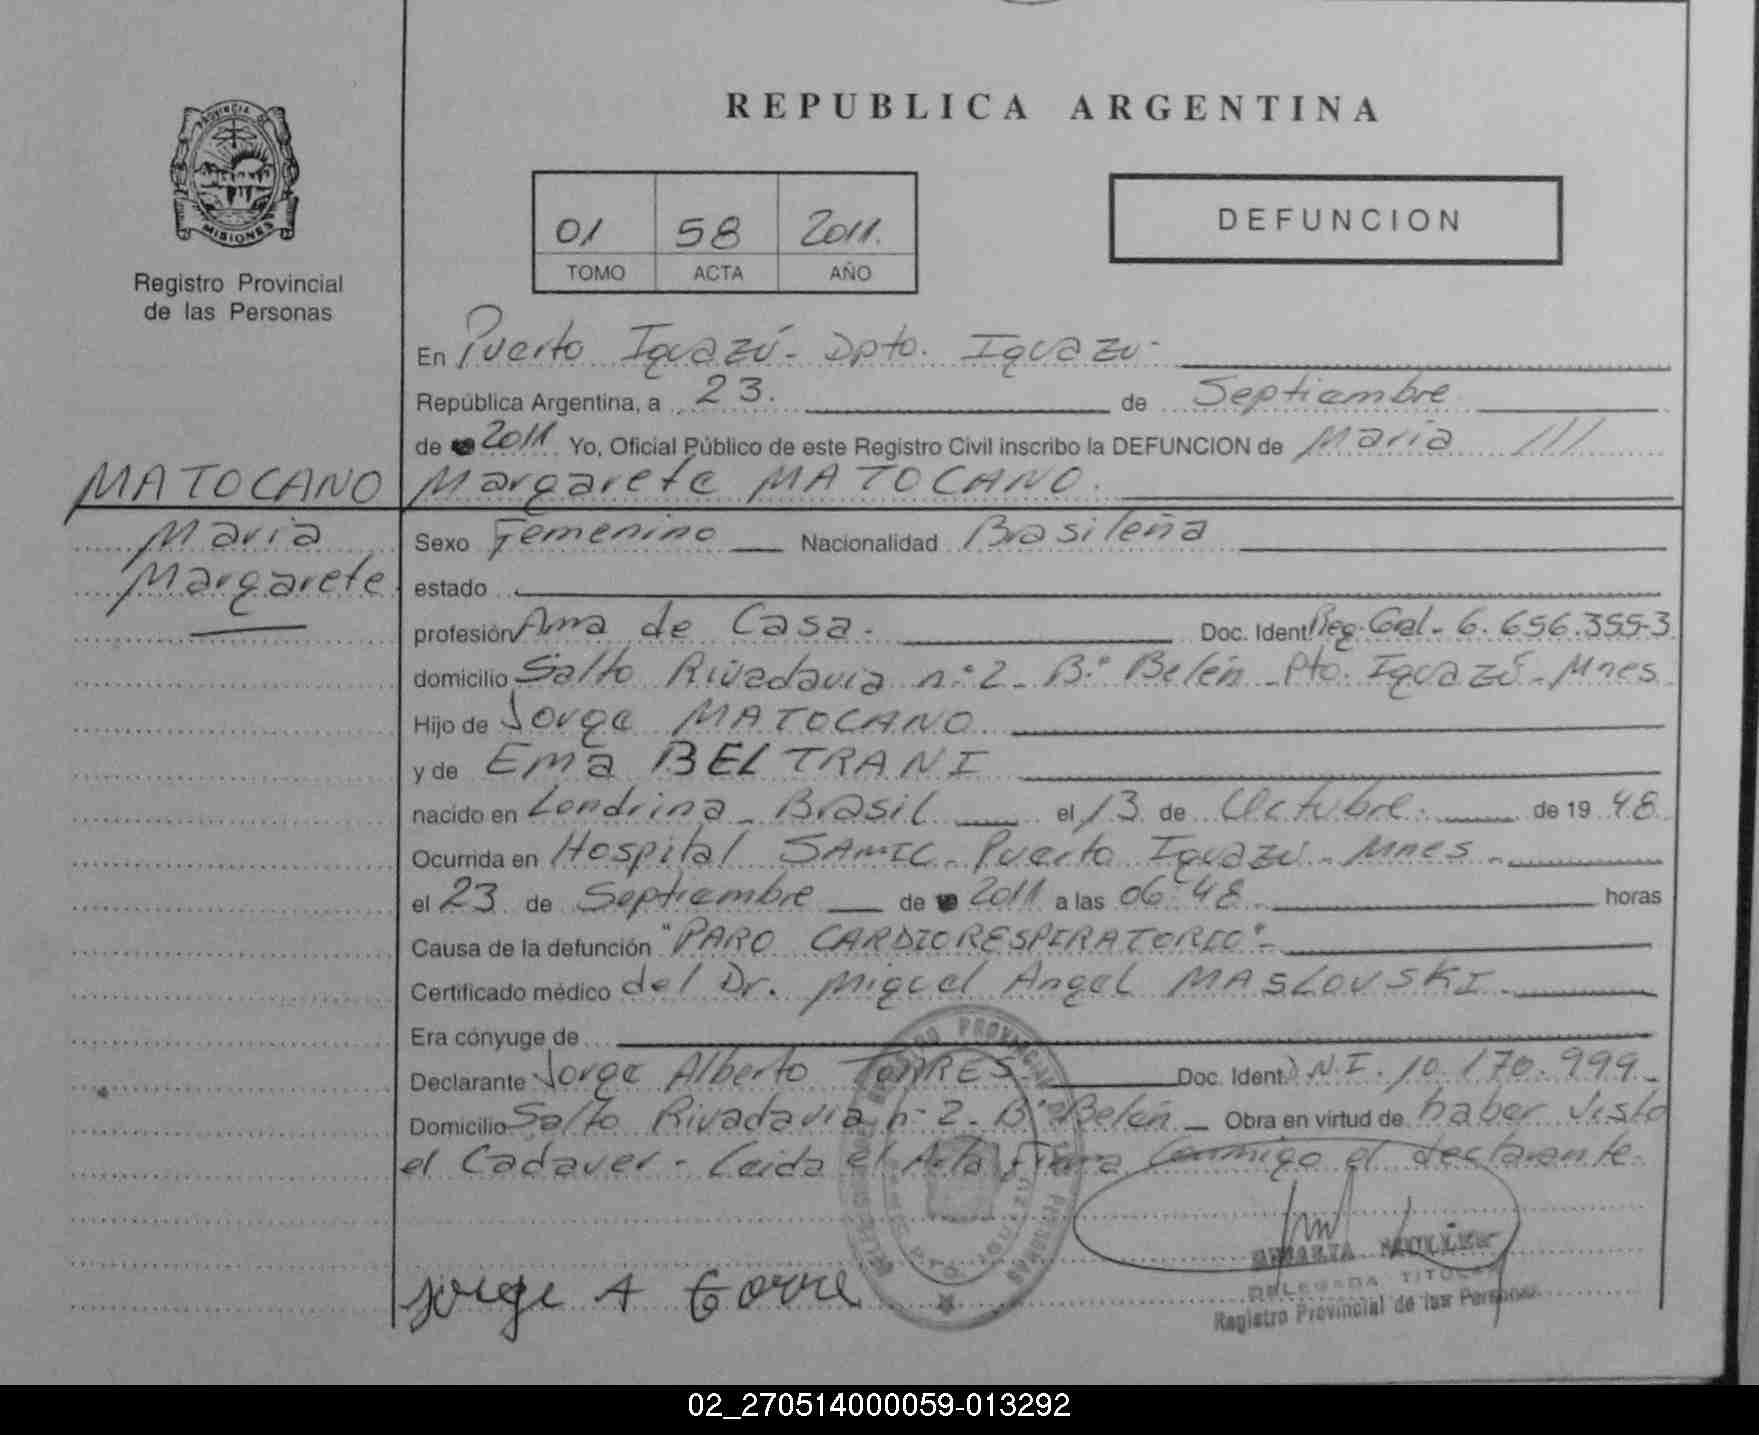 PROVINCIA DE
MISIONES
Registro Provincial
de las Personas
REPUBLICA ARGENTINA
01 58 2011.
TOMO ACTA AÑO
DEFUNCION
En Puerto Iguazú - Dpto. Iguazú -
República Argentina, a 23. de Septiembre
de 2011 Yo, Oficial Público de este Registro Civil inscribo la DEFUNCION de María ///
Margarete MATOCANO.
MATOCANO
María
Margarete
Sexo Femenino Nacionalidad Brasileña
estado
profesión Ama de Casa. Doc. Ident. Reg. Gral. 6.656.355-3
domicilio Salto Rivadavia n° 2 - B° Belén - Pto. Iguazú - Mnes
Hijo de Jorge MATOCANO
y de Ema BELTRANI
nacido en Londrina - Brasil el 13 de Octubre. de 19 48
Ocurrida en Hospital SAMIC - Puerto Iguazú - Mnes -
el 23 de Septiembre de 2011 a las 06-48 horas
Causa de la defunción "PARO CARDIORESPIRATORIO" -
Certificado médico del Dr. Miguel Angel MASLOVSKI
Era cónyuge de
Declarante Jorge Alberto TORRES Doc. Ident. D.N.I. 10.170.999 -
Domicilio Salto Rivadavia n° 2 - B° Belén - Obra en virtud de haber visto
el Cadaver - Leida el Acta firma conmigo el declarante.
Jorge A Torre
DELEGADA TITULAR
Registro Provincial de las Personas
02_270514000059-013292